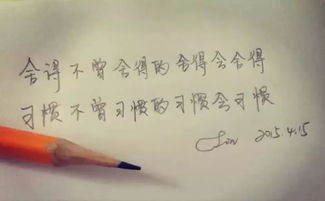 舍得不曾舍得的舍得会舍得
习惯不曾习惯的习惯会习惯
2015.4.15